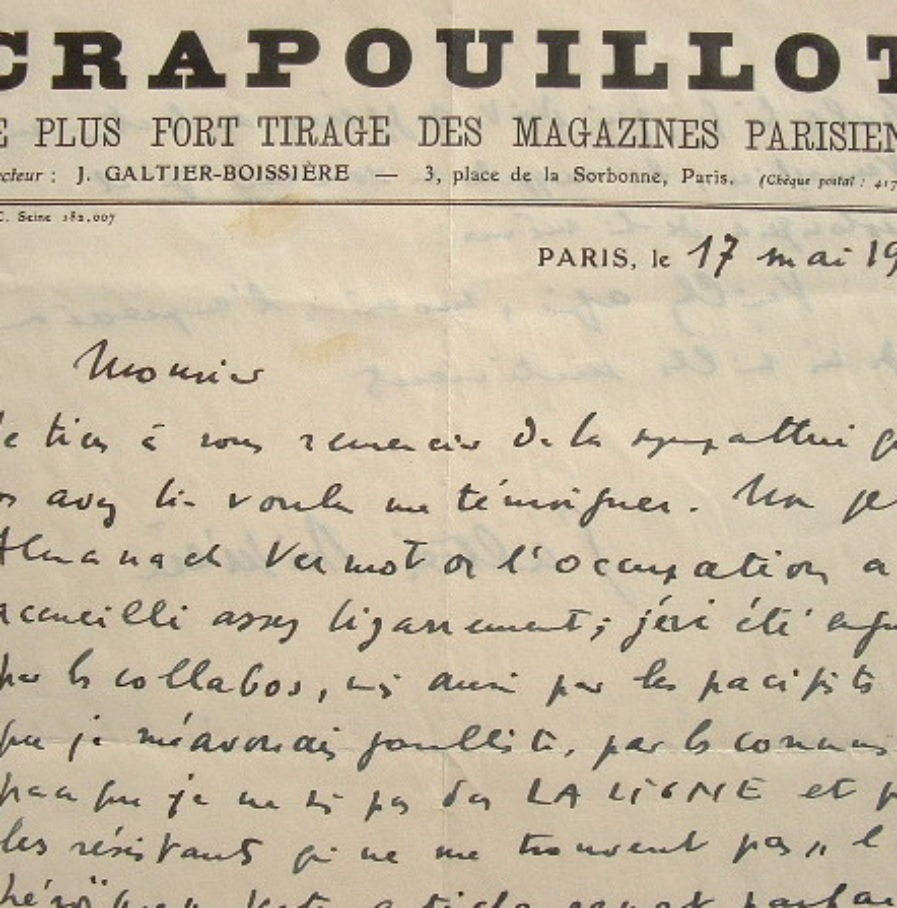 CRAPOUILLOT
E PLUS FORT TIRAGE DES MAGAZINES PARISIEN
cteur : J. GALTIER-BOISSIÈRE — 3, place de la Sorbonne, Paris. (Chèque postal : 417
C. Seine 182,007
PARIS, le 17 mai 19
Monsieur
Je tiens à vous remercier de la sympathie
avez bien voulu me témoigner. Mon
Almanach Vermot de l'occupation a
accueilli assez bizarrement ; j'ai été
par les collabos, mais aussi par les pacifistes
que je m'avouais gaulliste, par les commun
parce que je ne suis pas dans LA LIGNE et p
les résistants qui ne me trouvent pas „
héroïque„ article